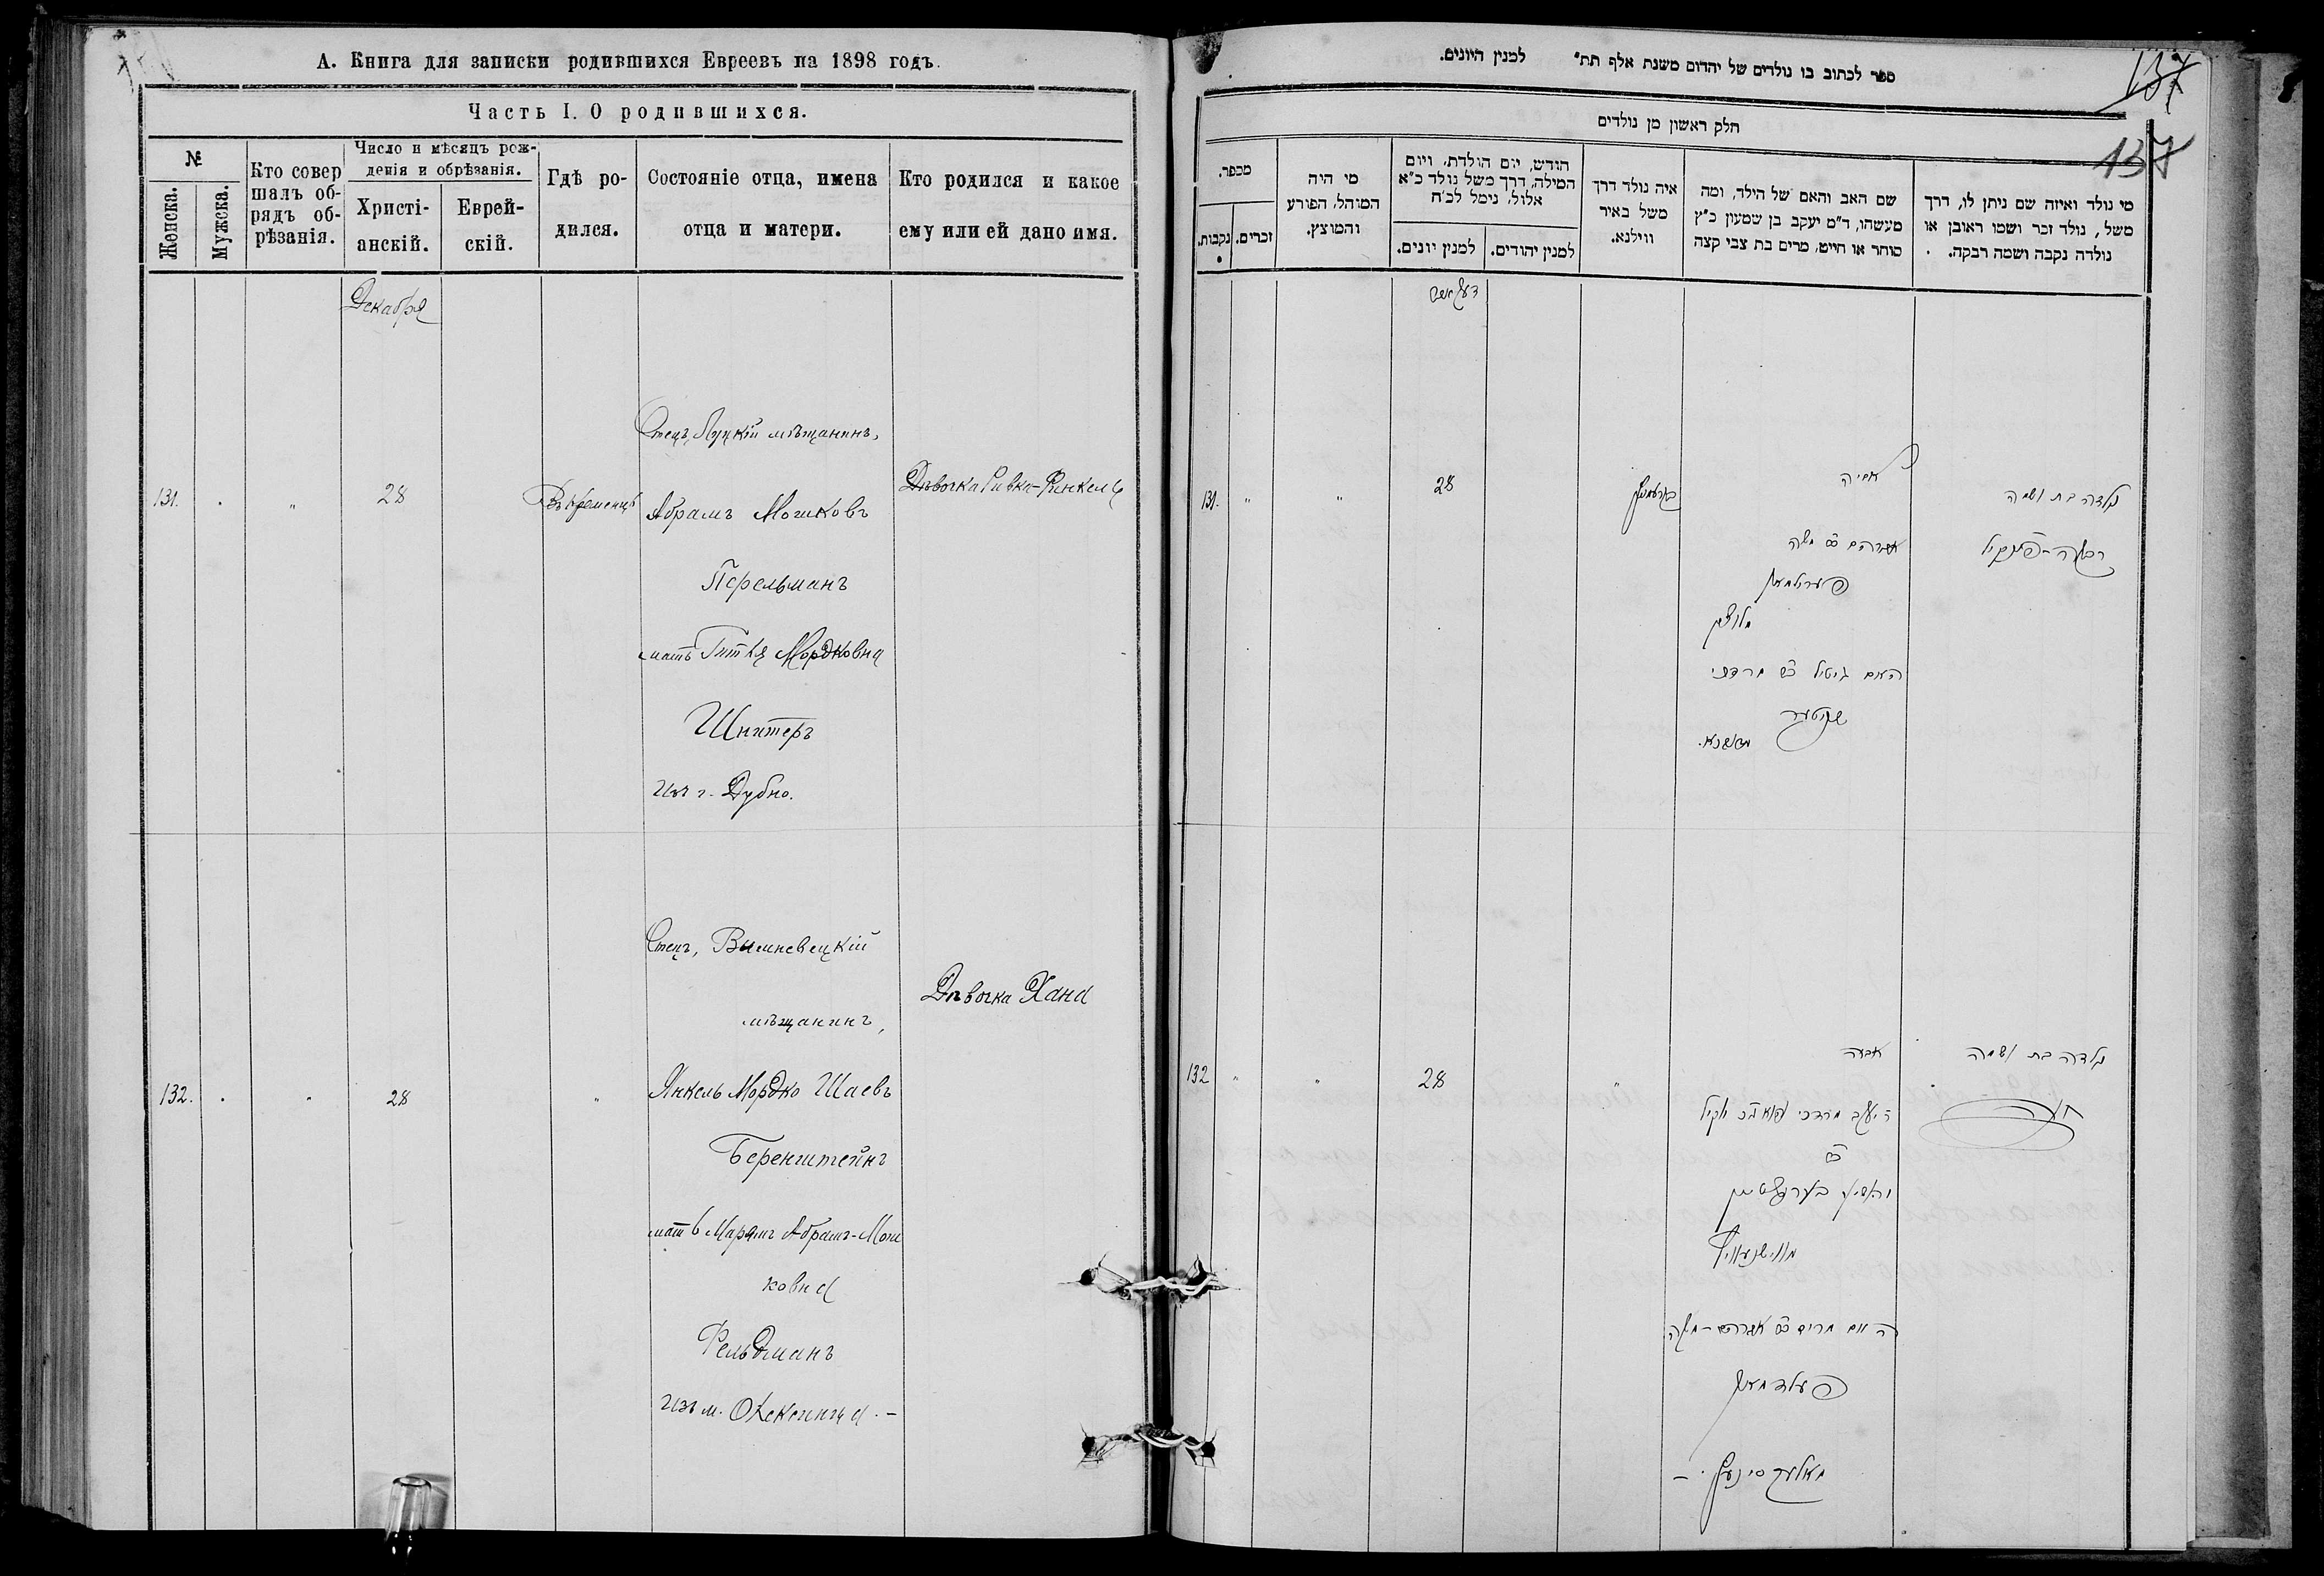 А. Книга для записки родившихся Евреевъ на 1898 годъ.
Часть I. О родившихся.
№
Женска.
Мужска.
Кто совер
шалъ об-
рядъ об-
рѣзанія.
Число и мѣсяцъ рож-
денія и обрѣзанія.
Христі-
анскій.
Еврей-
скій.
Гдѣ ро-
дился.
Состояніе отца, имена
отца и матери.
Кто родился и какое
ему или ей дано имя.
Декабря
131.
28
Въ Кременцѣ
Отецъ, Луцкій мѣщанинъ,
Абрамъ Мошковъ
Перельманъ
мать Гитля Мордковна
Шнитеръ
изъ г. Дубно.
Дѣвочка Ривка-
132.
28
Отецъ, Вишневецкій
мѣщанинъ,
Янкель Мордко Шаевъ
Беренштейнъ
мать Марямъ Абрамъ-Мош
ковна
Фельдманъ
изъ м. Олексинца. -
Дѣвочка Хана
ספר לכתוב בו נולדים של יהדום משנת אלף תת״ למנין היונים.
137
137
חלק ראשון מן נולדים
מספר.
נקבות.
זכרים.
מי היה
המוהל, הפורע
והמוצץ.
חודש, יום הולדת, ויום
המילה, דרך משל נולד כ״א
אלול, נימל לכ״ח
למנין יונים.
למנין יהודים.
איה נולד דרך
משל באיר
ווילנא.
שם האב והאם של הילד, ומה
מעשהו, ד״מ יעקב בן שמעון כ״ץ
סוחר או חייט, מרים בת צבי קצה
מי נולד ואיזה שם ניתן לו, דרך
משל, נולד זכר ושמו ראובן או
נולדה נקבה ושמה רבקה.
131.
28
אביה
אברהם ב״ר משה
פערילמאן
מלוצק
האם גיטיל ב״ר מרדכי
שניטער
מדובנא.
נולדה בת ושמה
132
28
אביה
ב״ר
מווישניוויץ
האם מרים ב״ר אברהם-משה
פעלדמאן
נולדה בת ושמה
חנה